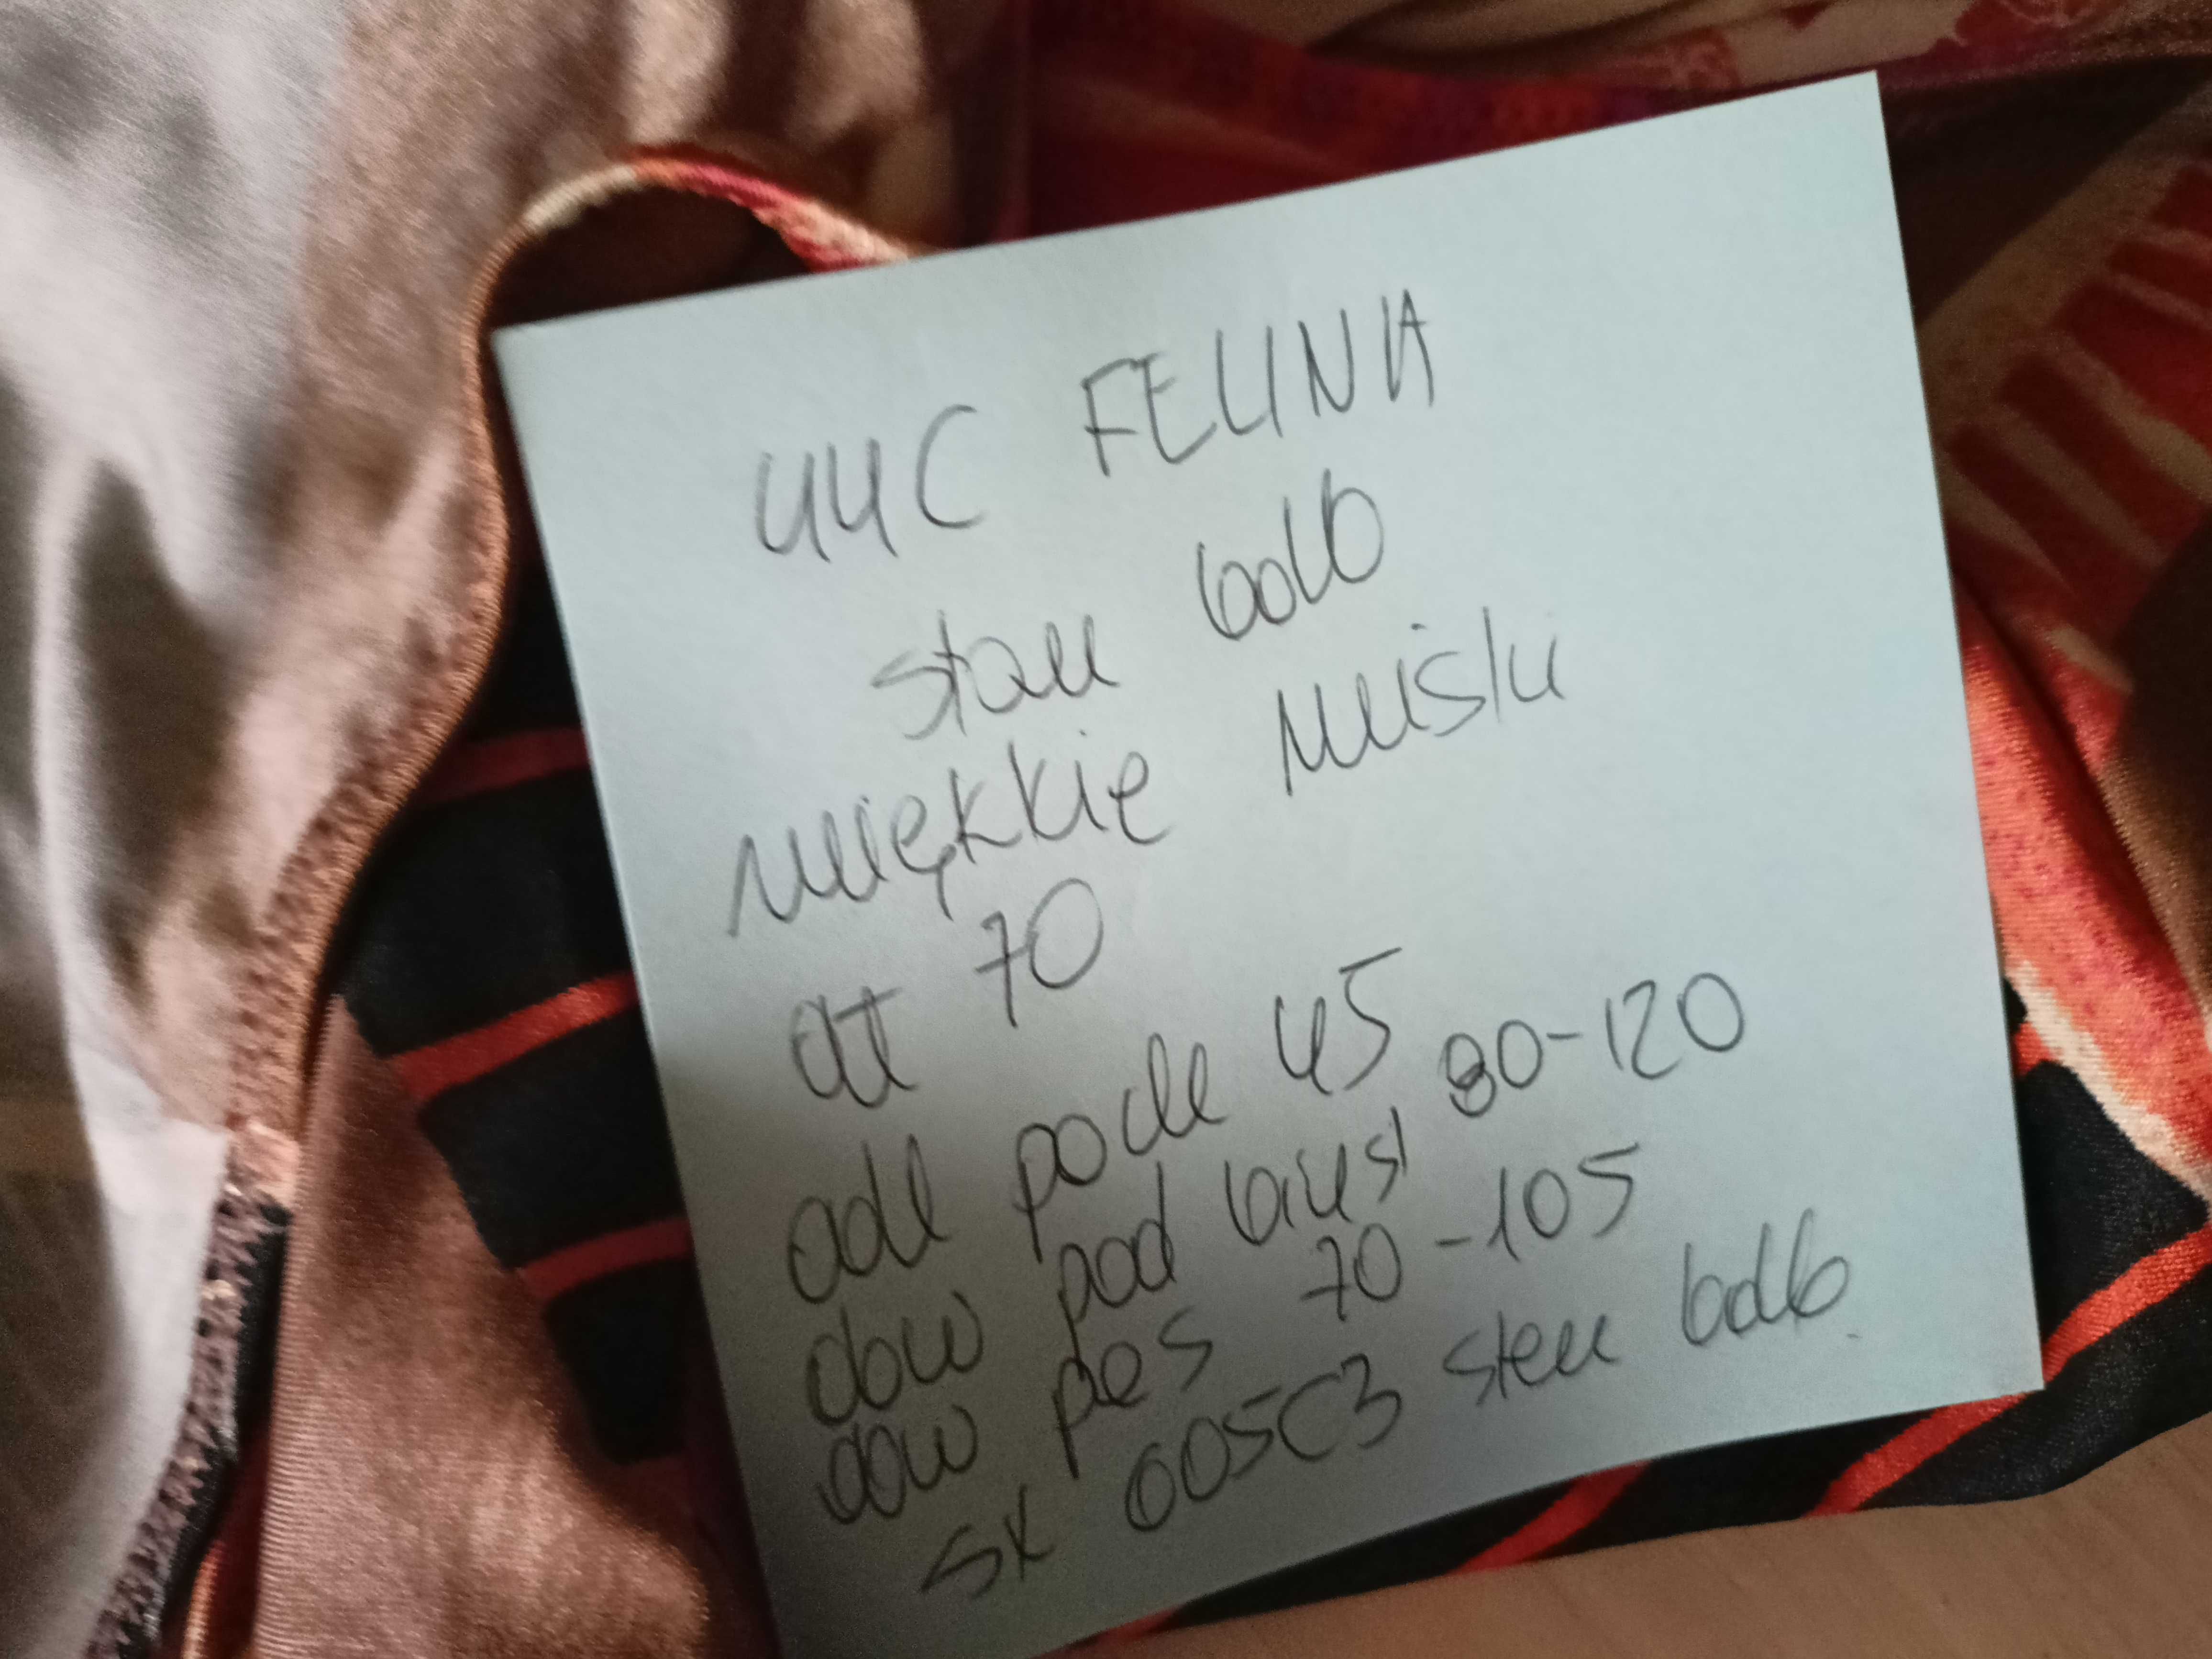 44C FELINA
stan bdb
miękkie miski
dł 70
odl pach 45
obw pod biust 80-120
obw pas 70-105
SX 605C3 stan bdb.